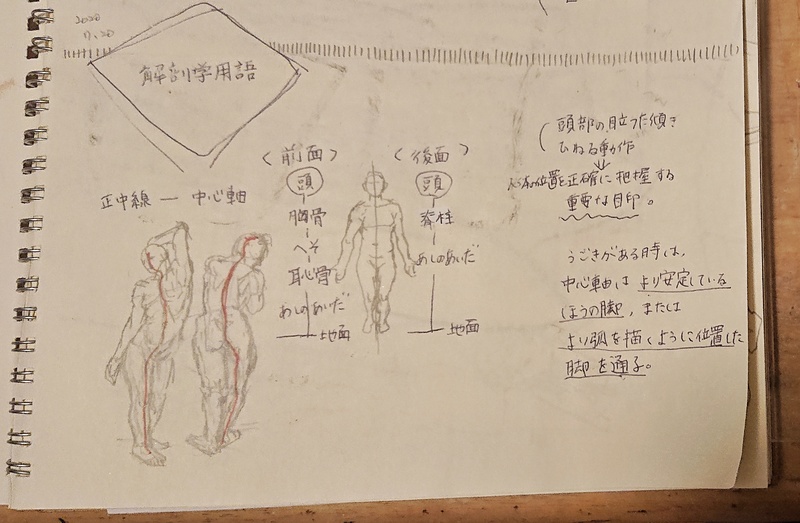 2020
11.20
解剖学用語
正中線 ― 中心軸
〈前面〉
頭
胸骨
へそ
恥骨
あしのあいだ
地面
〈後面〉
頭
脊柱
あしのあいだ
地面
頭部の目立った傾き
ひねる動作
位置を正確に把握する
重要な目印。
うごきがある時は、
中心軸は より安定している
ほうの脚、または
より弧を描くように位置した
脚を通る。